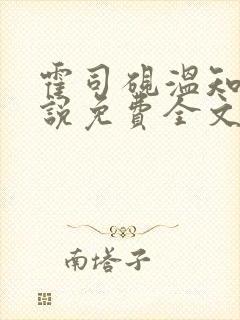 霍司砚温知
说免费全文
南塔子